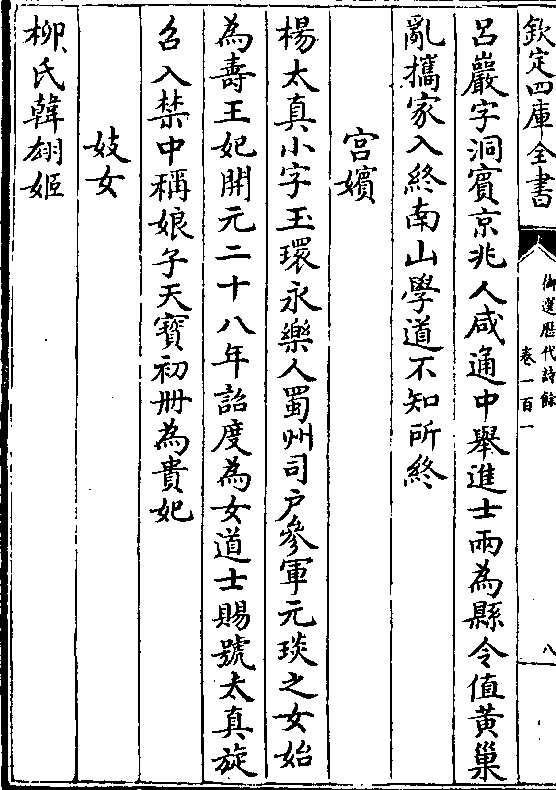 欽定四庫全書
御選歷代詩餘
卷一百一
八
呂巖字洞賓京兆人咸通中舉進士兩為縣令值黃巢
亂攜家入終南山學道不知所終
宮嬪
楊太真小字玉環永樂人蜀州司戶參軍元琰之女始
為壽王妃開元二十八年詔度為女道士賜號太真旋
召入禁中稱娘子天寶初冊為貴妃
妓女
柳氏韓翃姬